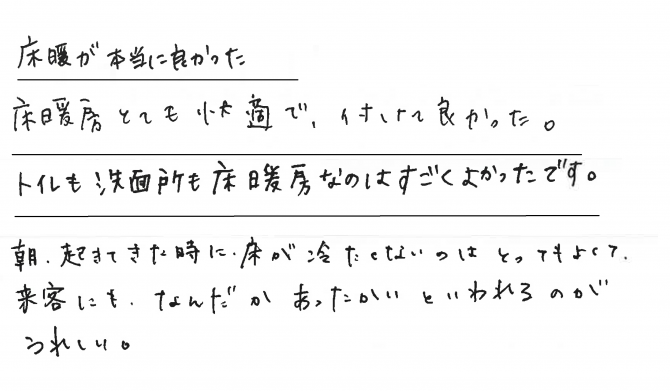 床暖が本当に良かった
床暖房とても快適で、付けて良かった。
トイレも洗面所も床暖房なのはすごくよかったです。
朝、起きてきた時に、床が冷たくないのはとってもよくて、
来客にも、なんだかあったかいといわれるのが
うれしい。